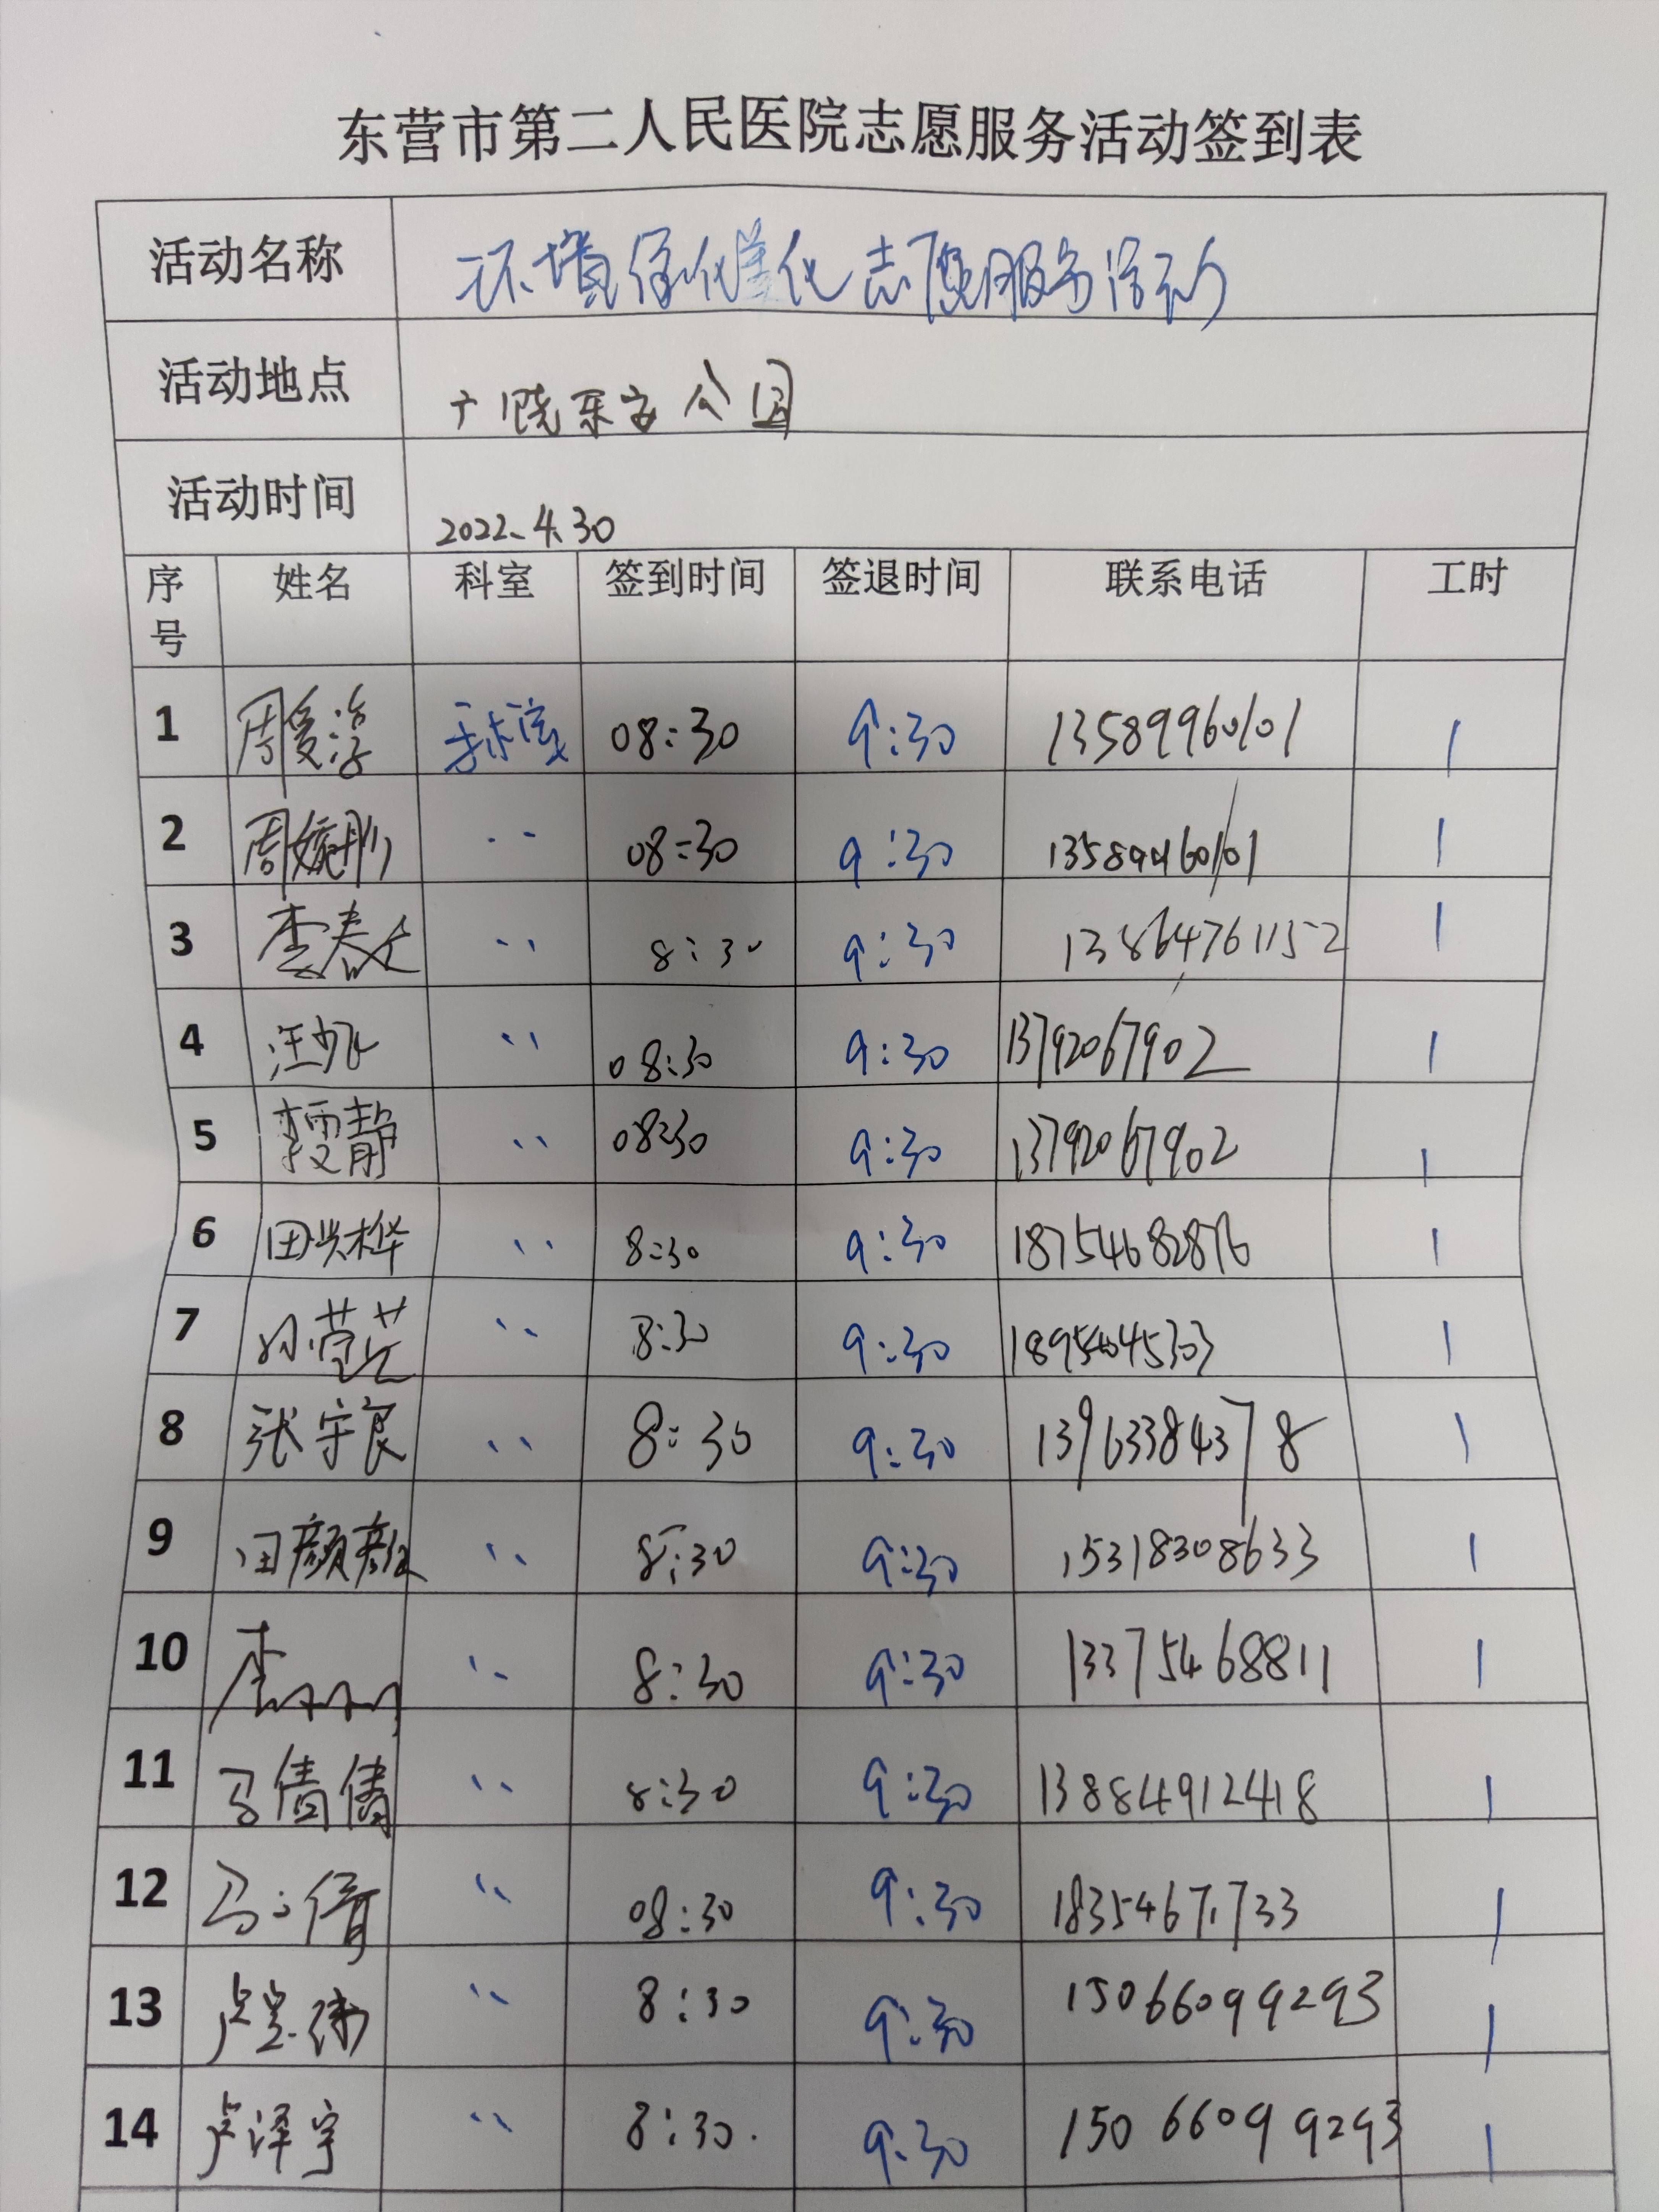 东营市第二人民医院志愿服务活动签到表
活动名称 环境保化美化志愿服务活动
活动地点 广饶乐安公园
活动时间 2022.4.30
序号 姓名 科室 签到时间 签退时间 联系电话 工时
1 周爱 手术室 08:30 9:30 13589960101 1
2 周 '' 08:30 9:30 13589960101 1
3 李春 '' 8:30 9:30 13864761152 1
4 汪 '' 08:30 9:30 13792067902 1
5 李雯静 '' 08:30 9:30 13792067902 1
6 田兴桦 '' 8:30 9:30 18754682876 1
7 孙营 '' 8:30 9:30 1
8 张宇良 '' 8:30 9:30 13963384378 1
9 田颜颜 '' 8:30 9:30 15318308633 1
10 李 '' 8:30 9:30 13375468811 1
11 马倩倩 '' 8:30 9:30 13884912418 1
12 马倩 '' 08:30 9:30 18354671733 1
13 卢 '' 8:30 9:30 15066099293 1
14 卢泽宇 '' 8:30 9:30 15066099293 1